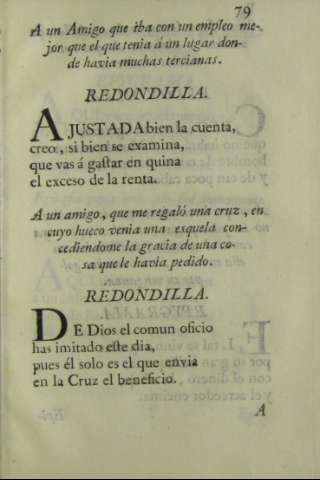 79
A un Amigo que iba con un empleo me-
jor que el que tenia á un lugar don-
de havia muchas tercianas.
REDONDILLA.
AJUSTADA bien la cuenta,
creo, si bien se examina,
que vas á gaſtar en quina
el exceso de la renta.
A un amigo, que me regaló una cruz, en
cuyo hueco venia una esquela con-
cediendome la gracia de una co-
sa que le havia pedido.
REDONDILLA.
DE Dios el comun oficio
has imitado eſte dia,
pues él solo es el que envia
en la Cruz el beneficio.
A